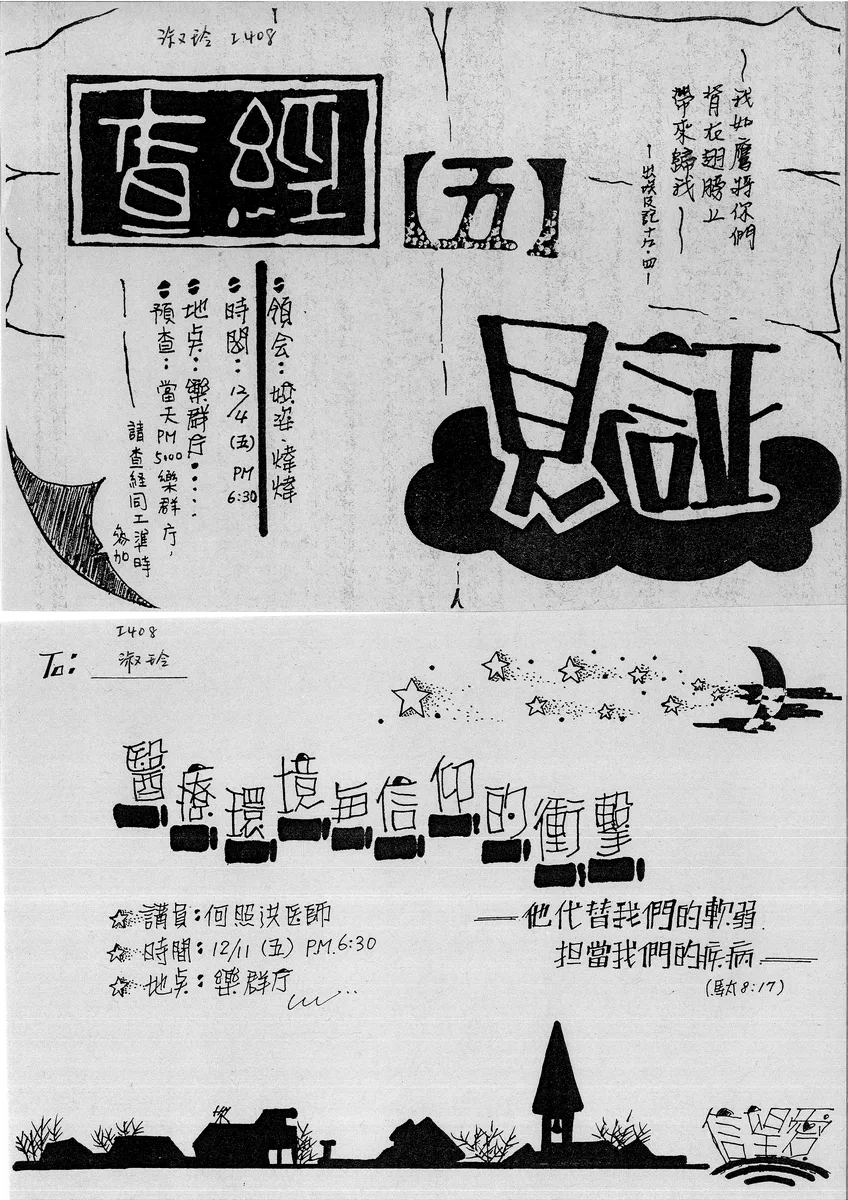 淑玲 I408
查經
【五】
見証
～我如鷹將你們
背在翅膀上
帶來歸我～
－出埃及記十九・四－
領会：姿、煒煒
時間：12/4（五）PM 6:30
地点：樂群庁．．．．．
預查：當天PM 5:00樂群庁，
請查經同工準時
參加
To: I408
淑玲
醫療環境与信仰的衝擊
講員：何照洪医師
時間：12/11（五）P.M.6:30
地点：樂群庁
——他代替我們的軟弱．
担當我們的疾病．——
（馬太8:17）
信望愛